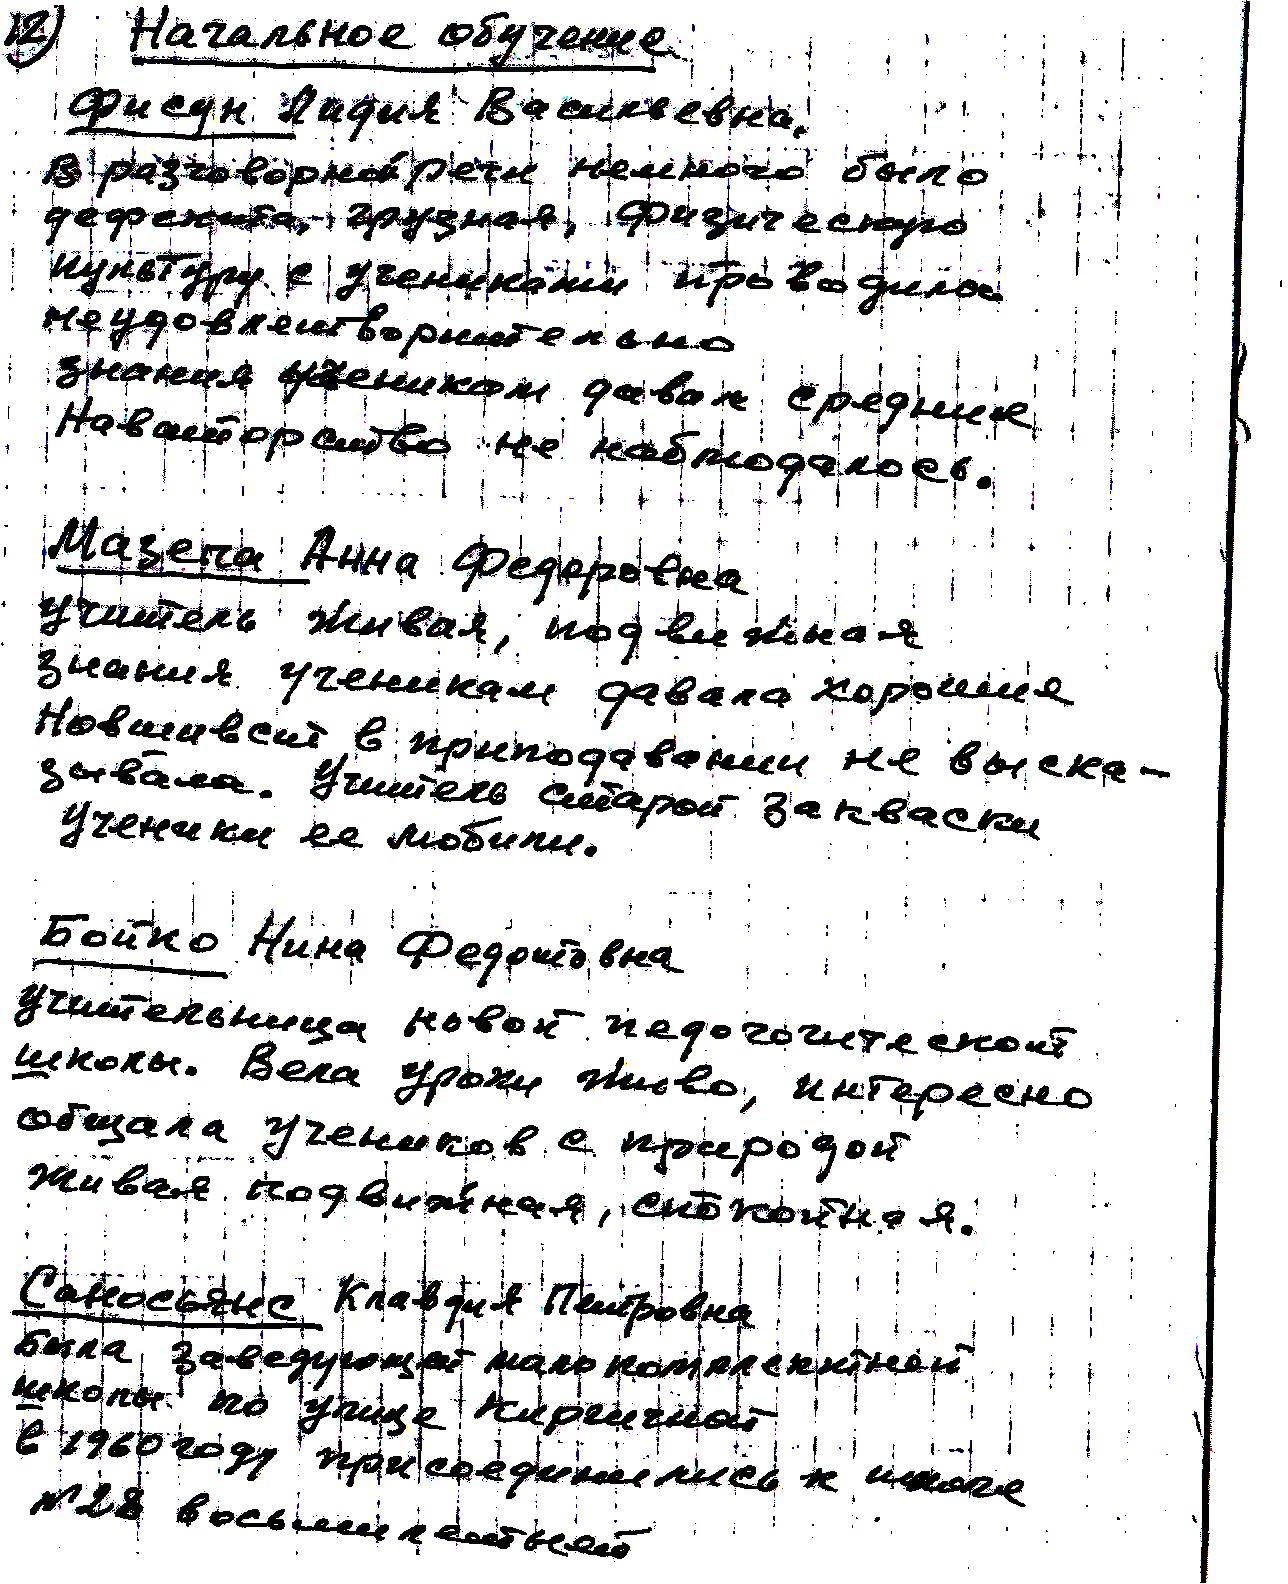 12) Начальное обучение
Фисун Лидия Васильевна.
В разговорной речи немного было
дефекита, грузная, физическую
культуру с учениками проводила
неудовлетворительно
знания ученикам давал средние
Наваторство не наблюдалось.
Мазепа Анна Федоровна
учитель живая, подвижная
знания ученикам давала хорошия
Новшивсит в приподавании не выска-
зывала. Учитель старой закваски
Ученики ее любили.
Бойко Нина Федотовна
учительница новой педогогической
школы. Вела уроки живо, интересно
общала учеников с природой
живая подвижная, спокойная.
Саносьянс Клавдия Петровна
была заведующей малокомплектной
школы по улице Кирпичной
в 1960 году присоединились к школе
№28 восьмилетней